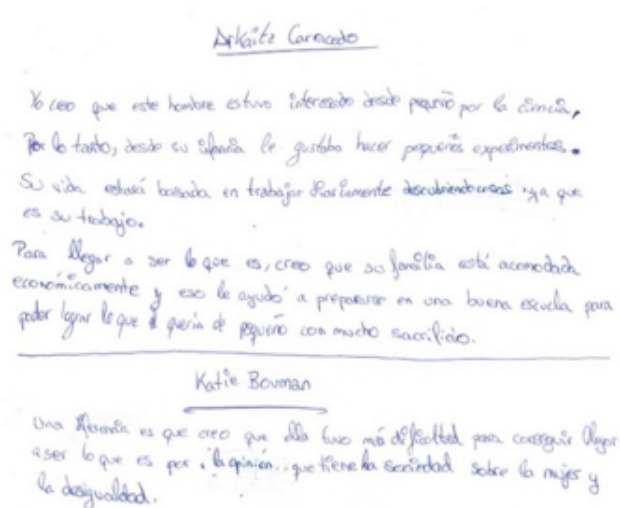 Arkaitz Carracedo
Yo creo que este hombre estuvo interesado desde pequeño por la ciencia,
Por lo tanto, desde su infancia le gustaba hacer pequeños experimentos.
Su vida estará basada en trabajar diariamente descubriendo cosas ya que
es su trabajo.
Para llegar a ser lo que es, creo que su familia está acomodada
económicamente y eso le ayudó a prepararse en una buena escuela para
poder lograr lo que él quería de pequeño con mucho sacrificio.
Katie Bouman
Una es que creo que ella tuvo más dificultad para conseguir llegar
a ser lo que es por la opinión que tiene la sociedad sobre la mujer y
la desigualdad.